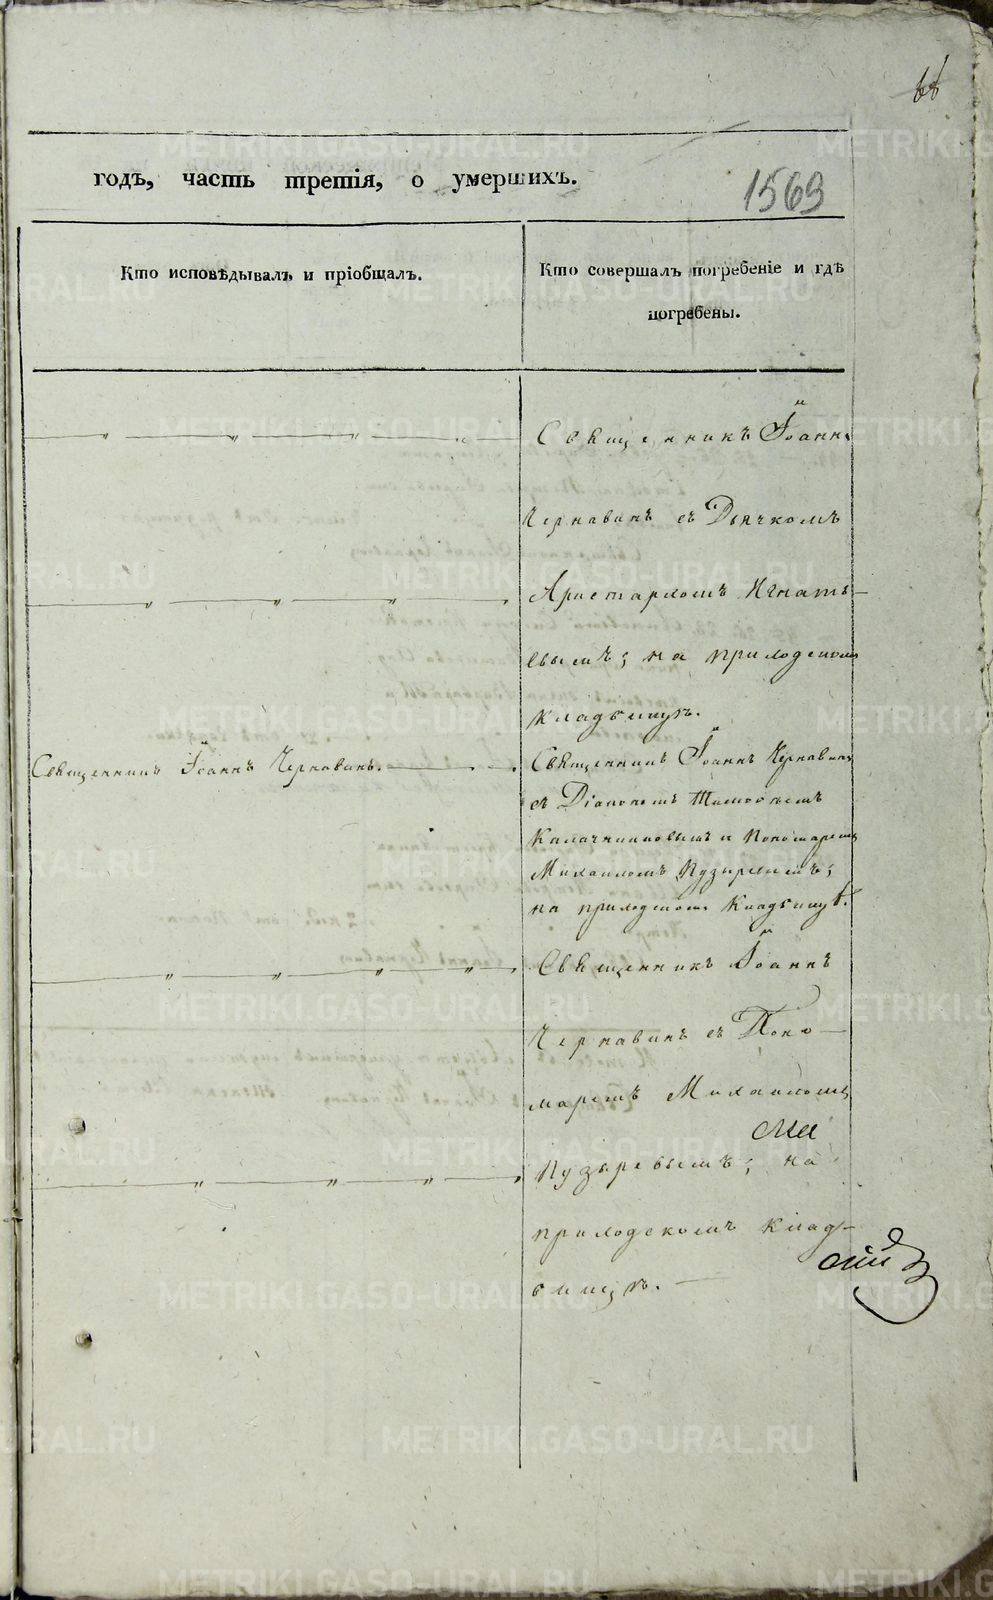 годъ, часть третія, о умершихъ.
1569
Кто исповѣдывалъ и пріобщалъ.
Кто совершалъ погребеніе и гдѣ
погребены.
Священникъ Іоаннъ
Чернавинъ съ Дьячкомъ
Аристархомъ Игнать-
евымъ; на приходскомъ
кладбищѣ.
Священникъ Іоаннъ Чернавинъ.
Священникъ Іоаннъ Чернавинъ
съ Діакономъ Тимоѳеемъ
Калачниковымъ и Пономаремъ
Михаиломъ Пузыревымъ;
на приходскомъ Кладбищѣ.
Священникъ Іоаннъ
Чернавинъ съ Поно-
маремъ Михаиломъ
Пузыревымъ; на
приходскомъ клад-
бищѣ.
METRIKI.GASO-URAL.RU